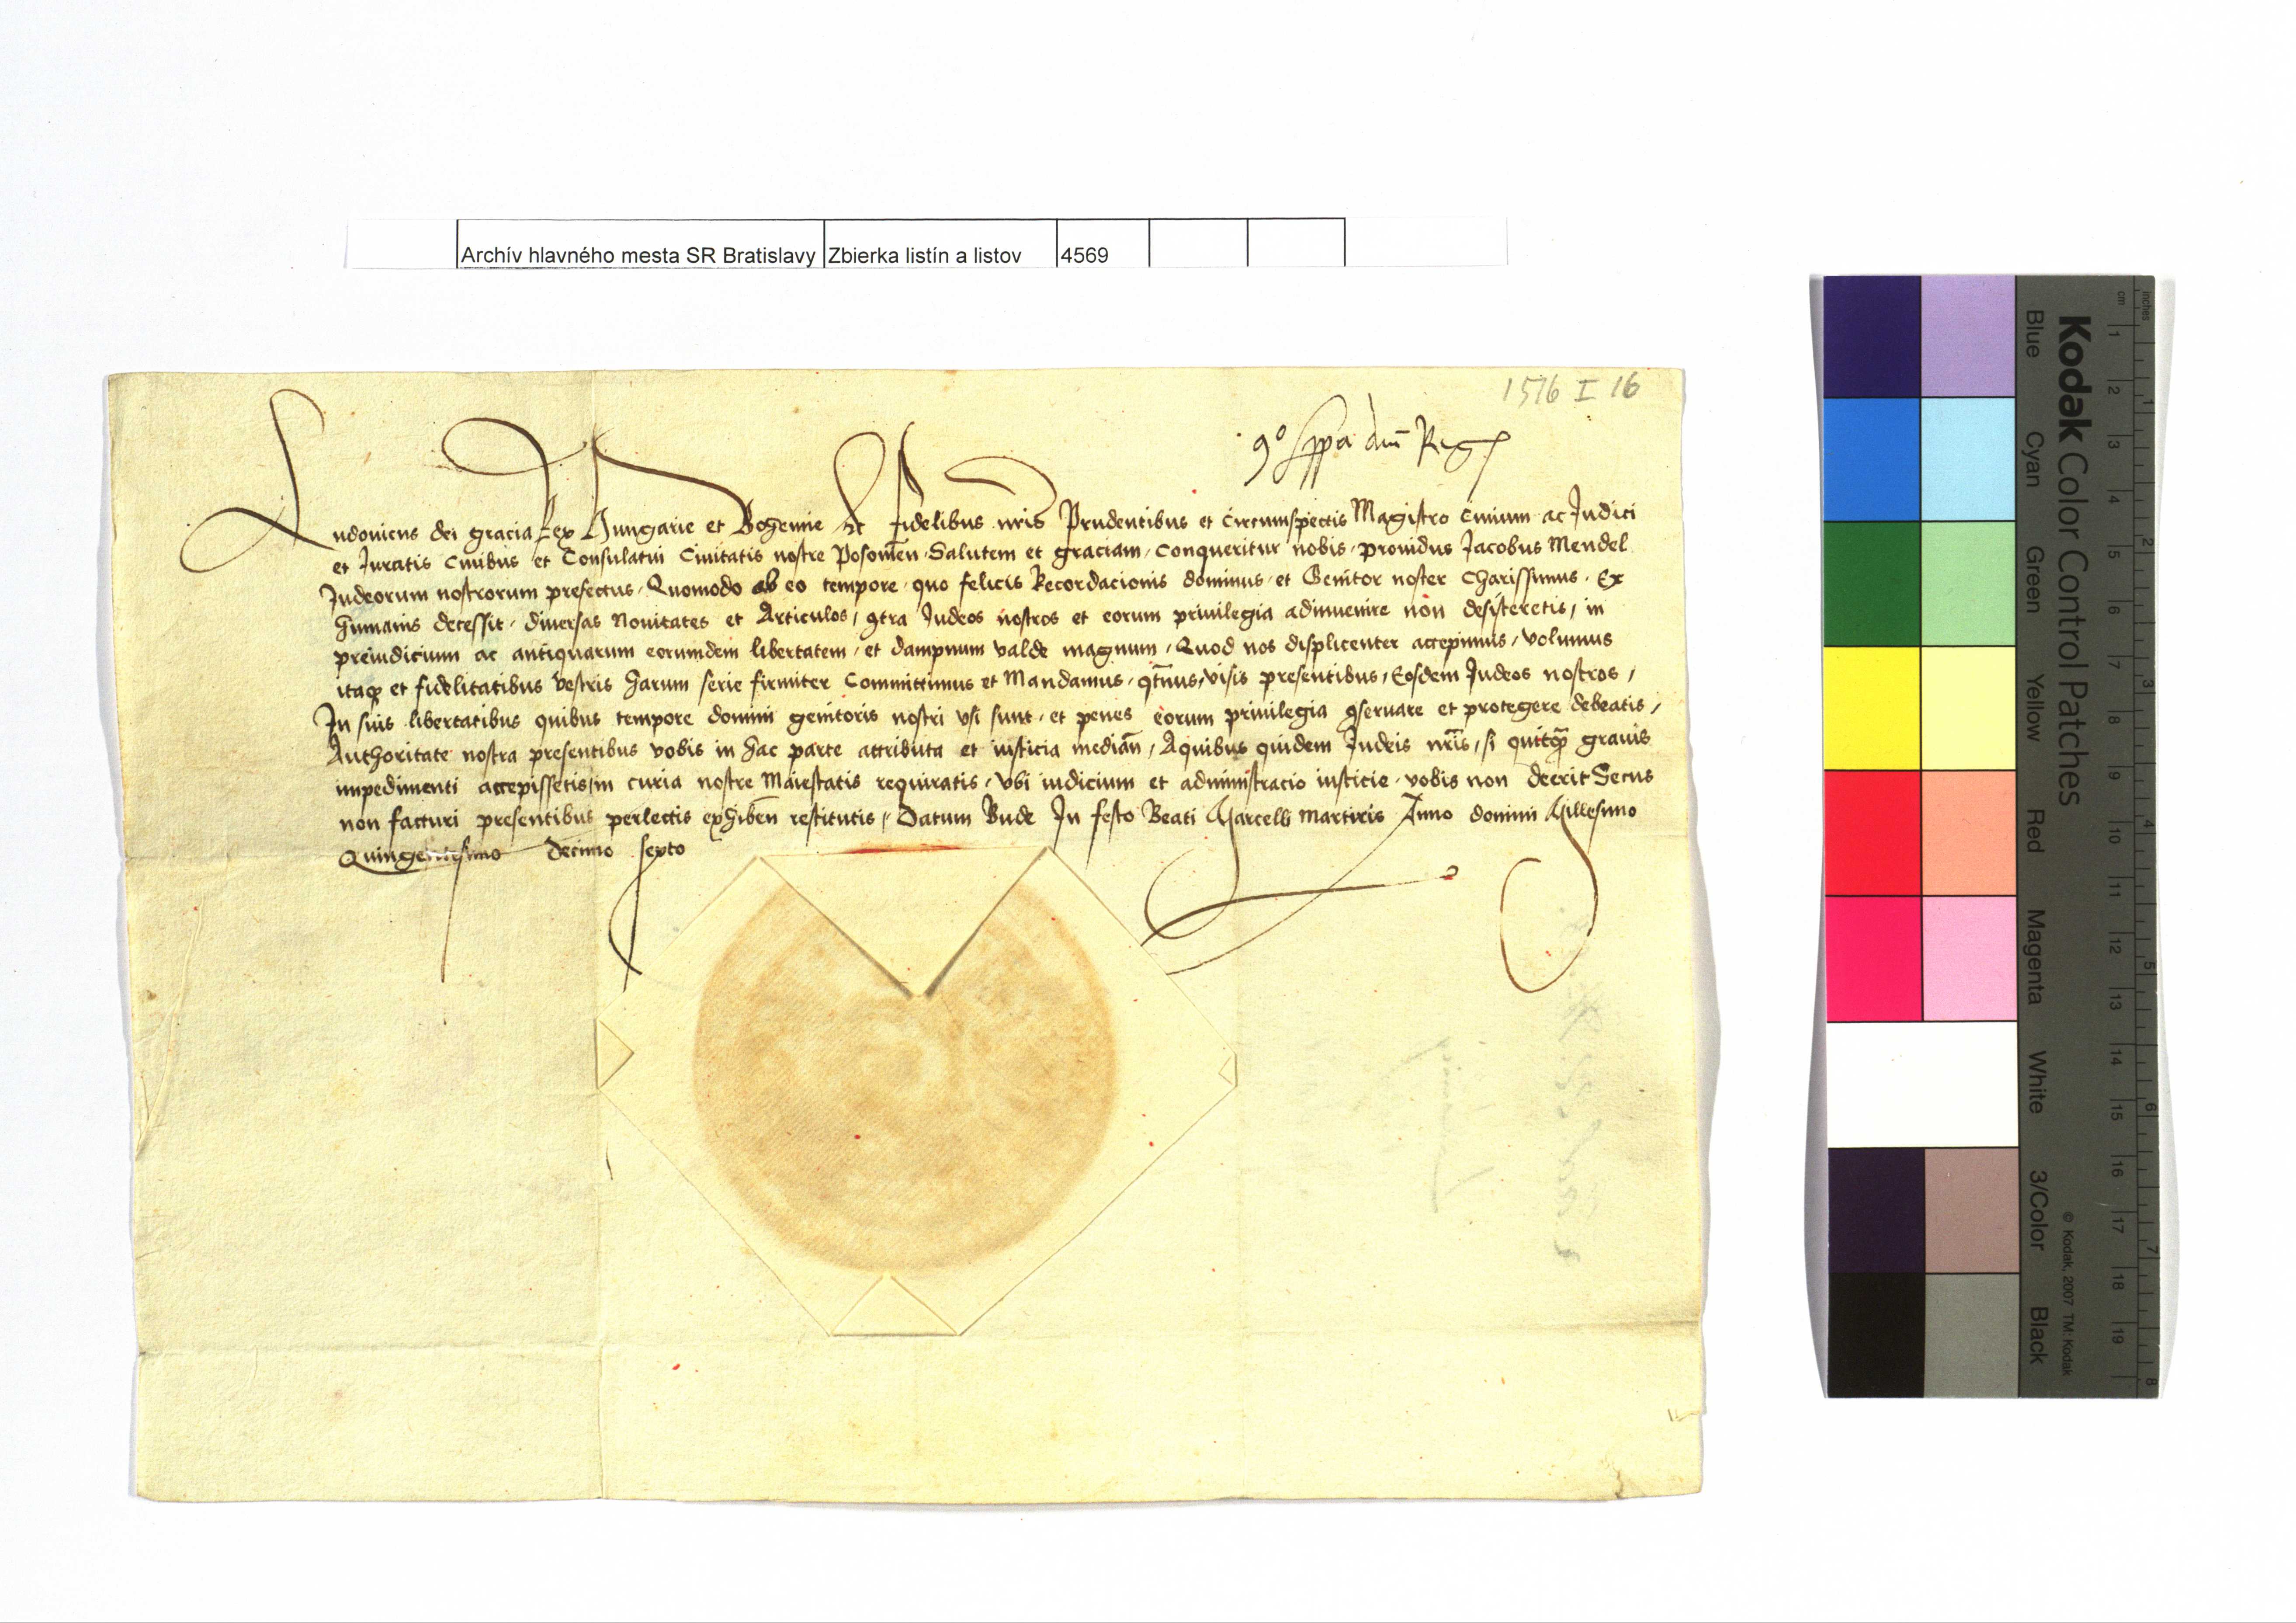 Archív hlavného mesta SR Bratislavy Zbierka listín a listov 4569
1516 I 16
Ludouicus dei gracia Rex Hungarie et Bohemie etc fidelibus nris Prudentibus et Circumspectis Magistro Ciuium ac Judici
et Juratis Ciuibus et Consulatui Ciuitatis nostre Posonien Salutem et graciam, Conqueritur nobis, prouidus Jacobus Mendel
Judeorum nostrorum prefectus, Quomodo ab eo tempore, quo felicis Recordacionis dominus et Genitor noster Charissimus, Ex
humanis decessit, diuersas Nouitates et Articulos, 9tra Judeos nostros et eorum priuilegia adinuenire non desisteretis, in
preiudicium ac antiquarum eorumdem libertatem, et dampnum valde magnum, Quod nos displicenter accepimus, volumus
itaq3 et fidelitatibus vestris harum serie firmiter Committimus et Mandamus, 9tnus, visis presentibus, Eosdem Judeos nostros,
In suis libertatibus quibus tempore domini genitoris nostri vsi sunt, et penes eorum priuilegia 9seruare et protegere debeatis,
Authoritate nostra presentibus vobis in hac parte attributa et iusticia median, Aquibus quidem Judeis nris, si quitq3 grauis
impedimenti accepissetis, in curia nostre Maiestatis requiratis, vbi iudicium et administracio iusticie, vobis non deerit Secus
non facturi presentibus perlectis exhiben restitutis, Datum Bude In festo Beati Marcelli Martiris Anno domini Millesimo
Quingentesimo decimo sexto
Kodak Color Control Patches
Blue Cyan Green Yellow Red Magenta White 3/Color Black
© Kodak, 2007 TM: Kodak
inches 1 2 3 4 5 6 7 8
cm 1 2 3 4 5 6 7 8 9 10 11 12 13 14 15 16 17 18 19